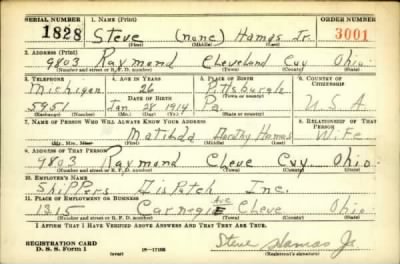 SERIAL NUMBER 1. NAME (Print) ORDER NUMBER
1828 Steve (none) Hamas Jr. 3001
(First) (Middle) (Last)
2. ADDRESS (Print)
9803 Raymond Cleveland Cuy Ohio
(Number and street or R. F. D. number) (Town) (County) (State)
3. TELEPHONE 4. AGE IN YEARS 5. PLACE OF BIRTH 6. COUNTRY OF CITIZENSHIP
Michigan 26 Pittsburgh
(Town or county)
DATE OF BIRTH
5951 Jan 28 1914 Pa. U S A
(Exchange) (Number) (Mo.) (Day) (Yr.) (State or country)
7. NAME OF PERSON WHO WILL ALWAYS KNOW YOUR ADDRESS 8. RELATIONSHIP OF THAT PERSON
Matilda Dorothy Hamas Wife
(First) (Middle) (Last)
9. ADDRESS OF THAT PERSON
9803 Raymond Cleve Cuy Ohio
(Number and street or R. F. D. number) (Town) (County) (State)
10. EMPLOYER'S NAME
Shippers Dispatch Inc.
11. PLACE OF EMPLOYMENT OR BUSINESS
1315 Carnegie Ave Cleve Ohio
(Number and street or R. F. D. number) (Town) (County) (State)
I AFFIRM THAT I HAVE VERIFIED ABOVE ANSWERS AND THAT THEY ARE TRUE.
REGISTRATION CARD
D. S. S. Form 1 (over) Steve Hamas Jr